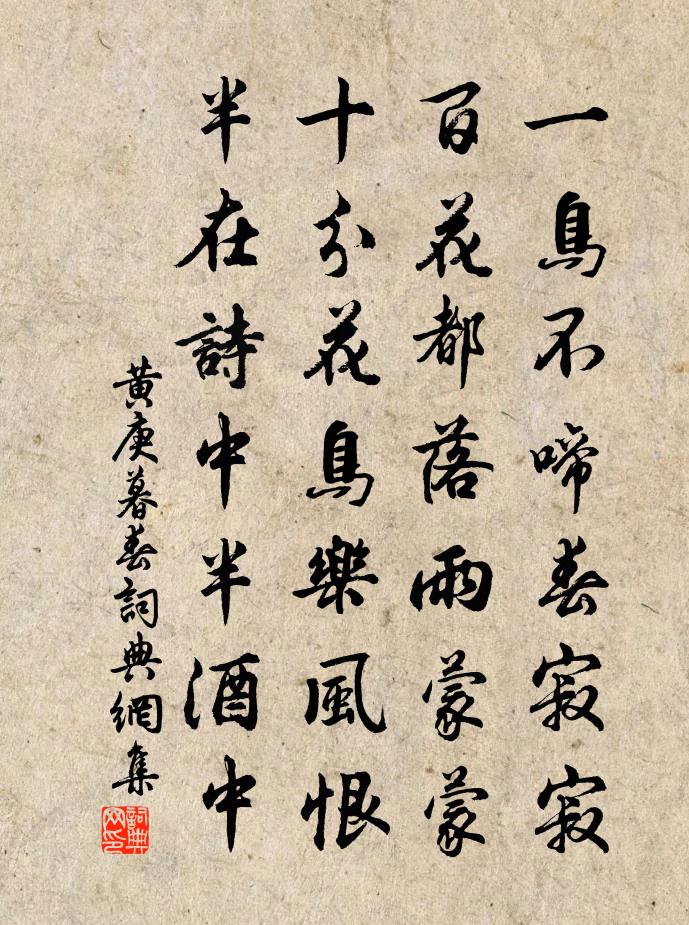 一鳥不啼春寂寂
百花都落雨蒙蒙
十分花鳥樂風恨
半在詩中半酒中
黃庚暮春詞典網集
詞典網印